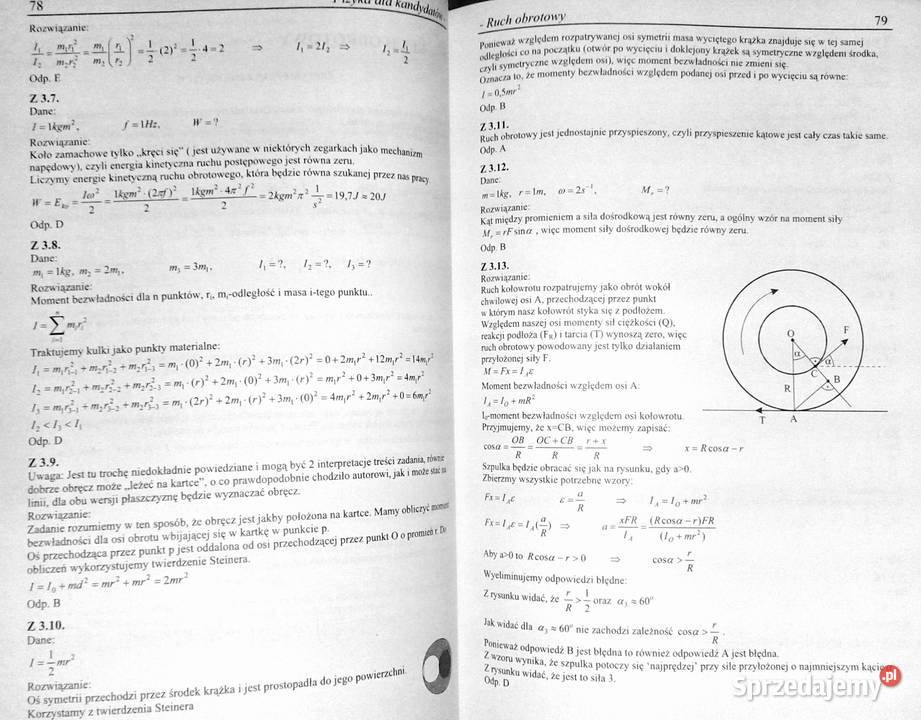 78
Fizyka dla kandydatów
Rozwiązanie:
I₁/I₂ = m₁r₁²/m₂r₂² = m₁/m₂ (r₁/r₂)² = 1/2 (2)² = 1/2 · 4 = 2 ⇒ I₁ = 2I₂ ⇒ I₂ = I₁/2
Odp. E
Z 3.7.
Dane:
I = 1kgm², f = 1Hz, W = ?
Rozwiązanie:
Koło zamachowe tylko „kręci się” ( jest używane w niektórych zegarkach jako mechanizm
napędowy), czyli energia kinetyczna ruchu postępowego jest równa zeru.
Liczymy energie kinetyczną ruchu obrotowego, która będzie równa szukanej przez nas pracy.
W = Eₖₒ = Iω²/2 = 1kgm² · (2πf)²/2 = 1kgm² · 4π²f²/2 = 2kgm²π² 1/s² = 19,7J ≈ 20J
Odp. D
Z 3.8.
Dane:
m₁ = 1kg, m₂ = 2m₁, m₃ = 3m₁, I₁ = ?, I₂ = ?, I₃ = ?
Rozwiązanie:
Moment bezwładności dla n punktów, rᵢ, mᵢ-odległość i masa i-tego punktu..
I = Σ mᵢrᵢ²
Traktujemy kulki jako punkty materialne:
I₁ = m₁r²₁₋₁ + m₂r²₁₋₂ + m₃r²₁₋₃ = m₁ · (0)² + 2m₁ · (r)² + 3m₁ · (2r)² = 0 + 2m₁r² + 12m₁r² = 14m₁r²
I₂ = m₁r²₂₋₁ + m₂r²₂₋₂ + m₃r²₂₋₃ = m₁ · (r)² + 2m₁ · (0)² + 3m₁ · (r)² = m₁r² + 0 + 3m₁r² = 4m₁r²
I₃ = m₁r²₃₋₁ + m₂r²₃₋₂ + m₃r²₃₋₃ = m₁ · (2r)² + 2m₁ · (r)² + 3m₁ · (0)² = 4m₁r² + 2m₁r² + 0 = 6m₁r²
I₂ < I₃ < I₁
Odp. D
Z 3.9.
Uwaga: Jest tu trochę niedokładnie powiedziane i mogą być 2 interpretacje treści zadania, równie
dobrze obręcz może „leżeć na kartce”, o co prawdopodobnie chodziło autorowi, jak i może stać na
linii, dla obu wersji płaszczyznę będzie wyznaczać obręcz.
Rozwiązanie:
Zadanie rozumiemy w ten sposób, że obręcz jest jakby położona na kartce. Mamy obliczyć moment
bezwładności dla osi obrotu wbijającej się w kartkę w punkcie p.
Oś przechodząca przez punkt p jest oddalona od osi przechodzącej przez punkt O o promień r. Do
obliczeń wykorzystujemy twierdzenie Steinera.
I = I₀ + md² = mr² + mr² = 2mr²
Odp. B
Z 3.10.
Dane:
I = 1/2 mr²
Rozwiązanie:
Oś symetrii przechodzi przez środek krążka i jest prostopadła do jego powierzchni.
Korzystamy z twierdzenia Steinera
- Ruch obrotowy
79
Ponieważ względem rozpatrywanej osi symetrii masa wyciętego krążka znajduje się w tej samej
odległości co na początku (otwór po wycięciu i doklejony krążek są symetryczne względem środka,
czyli symetryczne względem osi), więc moment bezwładności nie zmieni się.
Oznacza to, że momenty bezwładności względem podanej osi przed i po wycięciu są równe:
I = 0,5mr²
Odp. B
Z 3.11.
Ruch obrotowy jest jednostajnie przyspieszony, czyli przyspieszenie kątowe jest cały czas takie same.
Odp. A
Z 3.12.
Dane:
m = 1kg, r = 1m, ω = 2s⁻¹, Mᵣ = ?
Rozwiązanie:
Kąt między promieniem a siła dośrodkową jest równy zeru, a ogólny wzór na moment siły
Mᵣ = rF sin α , więc moment siły dośrodkowej będzie równy zeru.
Odp. B
Z 3.13.
Rozwiązanie:
Ruch kołowrotu rozpatrujemy jako obrót wokół
chwilowej osi A, przechodzącej przez punkt
w którym nasz kołowrót styka się z podłożem.
Względem naszej osi momenty sił ciężkości (Q),
reakcji podłoża (Fᴿ) i tarcia (T) wynoszą zero, więc
ruch obrotowy powodowany jest tylko działaniem
przyłożonej siły F.
M = Fx = I_Aε
Moment bezwładności względem osi A:
I_A = I_O + mR²
I₀-moment bezwładności względem osi kołowrotu.
Przyjmujemy, że x=CB, więc możemy zapisać:
cos α = OB/R = OC + CB/R = r + x/R ⇒ x = R cos α − r
O
F
α
α
C
B
R
T
A
Szpulka będzie obracać się jak na rysunku, gdy a>0.
Zbierzmy wszystkie potrzebne wzory:
Fx = I_Aε ε = a/R ⇒ I_A = I_O + mr²
Fx = I_Aε = I_A(a/R) ⇒ a = xFR/I_A = (R cos α − r)FR/(I_O + mr²)
Aby a>0 to R cos α − r > 0 ⇒ cos α > r/R
Wyeliminujemy odpowiedzi błędne:
Z rysunku widać, że r/R > 1/2 oraz α₃ ≈ 60°
Jak widać dla α₃ ≈ 60° nie zachodzi zależność cos α > r/R.
Ponieważ odpowiedź B jest błędna to również odpowiedź A jest błędna.
Z wzoru wynika, że szpulka potoczy się 'najprędzej' przy sile przyłożonej o najmniejszym kącie
Z rysunku widać, że jest to siła 3.
Odp. D
Sprzedajemy.pl